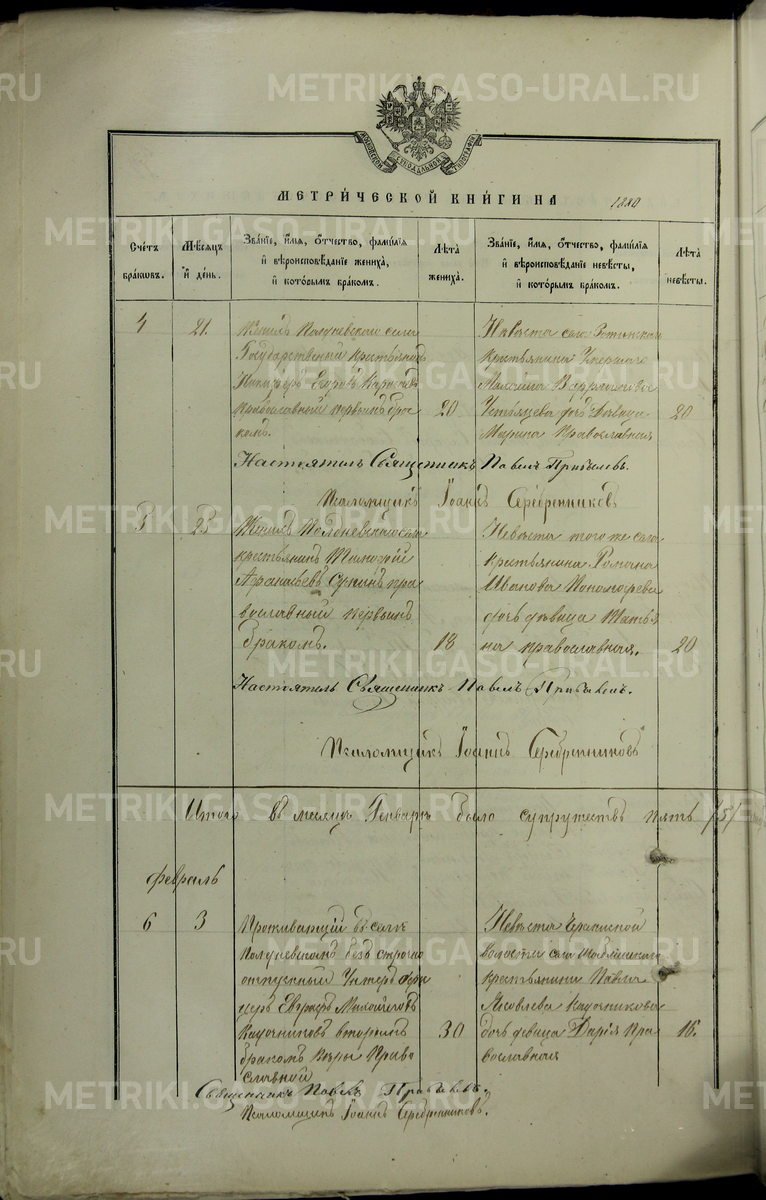 METRIKI.GASO-URAL.RU
МЕТРИ́ЧЕСКОЙ КНИ́ГИ НА 1880
Сче́тъ бра́ковъ.
Мѣ́сяцъ и҆ де́нь.
Зва́нїе, и҆́мя, ѻ҆́тчество, фами́лїя
и҆ вѣроисповѣ́данїе жениха̀,
и҆ кото́рымъ бра́комъ.
Лѣ́та жениха̀.
Зва́нїе, и҆́мя, ѻ҆́тчество, фами́лїя
и҆ вѣроисповѣ́данїе невѣ́сты,
и҆ кото́рымъ бра́комъ.
Лѣ́та невѣ́сты.
4
21.
Женихъ Полдневскаго села
Государственный крестьянинъ
Егоровъ
православный первымъ бра
комъ.
20
Невѣста села
крестьянина Умершаго
Максима
Устьянцева дочь Дѣвица
Марина Православная
20
Настоятель Священникъ Павелъ Прибылевъ.
Псаломщикъ Іоаннъ Серебренниковъ
5
25
Женихъ Полдневскаго села
крестьянинъ Тимофѣй
Афанасьевъ пра
вославный первымъ
бракомъ.
18
Невѣста того же села
крестьянина Романа
Иванова Пономарева
дочь дѣвица Татья
на православная.
20
Настоятель Священникъ Павелъ Прибылевъ.
Псаломщикъ Іоаннъ Серебренниковъ
Итого въ месяцѣ Генварѣ было супружествъ пять /5/
Февраль
6
3
Проживающій въ селѣ
Полдневскомъ безсрочно
отпускный Унтеръ Офи
церъ Евграфъ Михайловъ
Калочниковъ вторымъ
бракомъ Вѣры Право
славной
30
Невѣста
волости села
крестьянина Павла
Яковлева Калочникова
дочь девица Дарія Пра
вославная
16.
Священникъ Павелъ Прибылевъ.
Псаломщикъ Іоаннъ Серебренниковъ.